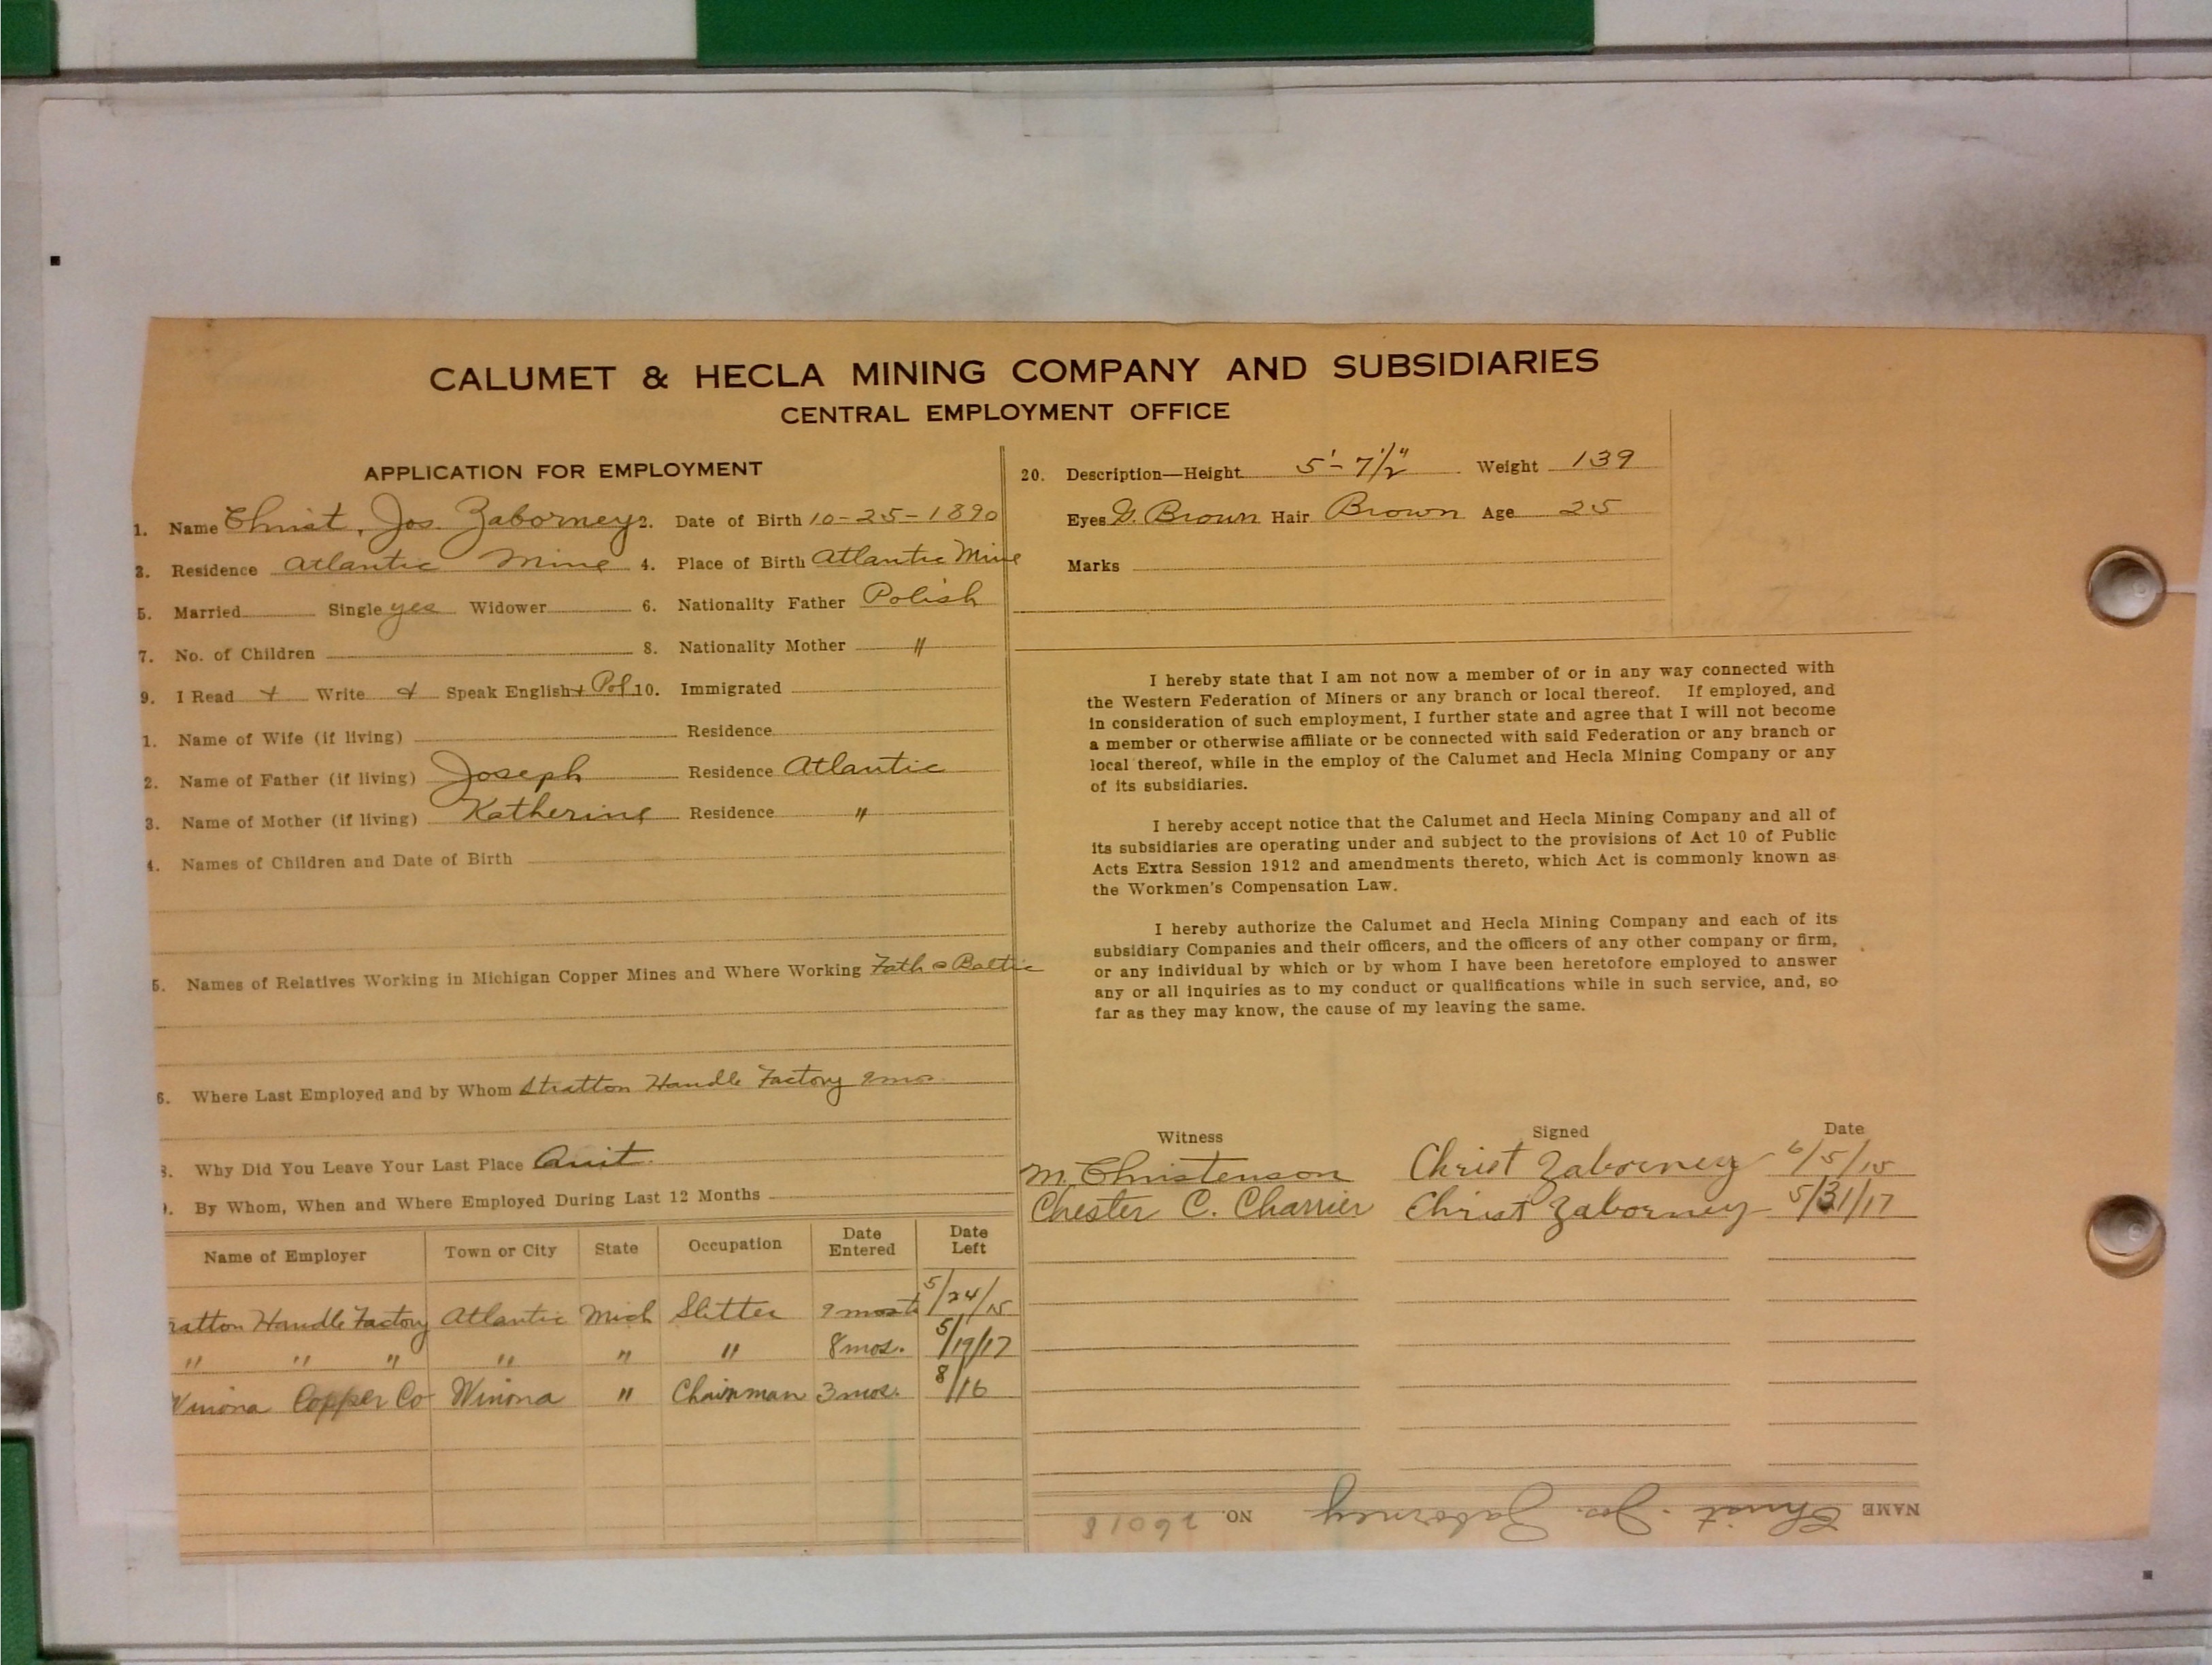 CALUMET & HECLA MINING COMPANY AND SUBSIDIARIES
CENTRAL EMPLOYMENT OFFICE
APPLICATION FOR EMPLOYMENT
1. Name Christ, Jos. Zaborney 2. Date of Birth 10-25-1890
3. Residence Atlantic Mine 4. Place of Birth Atlantic Mine
5. Married Single yes Widower 6. Nationality Father Polish
7. No. of Children 8. Nationality Mother "
9. I Read + Write + Speak English + Pol 10. Immigrated
1. Name of Wife (if living) Residence
2. Name of Father (if living) Joseph Residence Atlantic
3. Name of Mother (if living) Katherine Residence "
4. Names of Children and Date of Birth
5. Names of Relatives Working in Michigan Copper Mines and Where Working Fath Baltic
6. Where Last Employed and by Whom Stratton Handle Factory 9mos
8. Why Did You Leave Your Last Place Quit.
9. By Whom, When and Where Employed During Last 12 Months
Name of Employer Town or City State Occupation Date Entered Date Left
ratton Handle Factory Atlantic Mich Slitter 9 5/24/15
" " " " " " 8mos. 5/19/17
Winona Copper Co Winona " Chainman 3mos. 8/16
20. Description—Height 5'-7½" Weight 139
Eyes D. Brown Hair Brown Age 25
Marks
I hereby state that I am not now a member of or in any way connected with
the Western Federation of Miners or any branch or local thereof. If employed, and
in consideration of such employment, I further state and agree that I will not become
a member or otherwise affiliate or be connected with said Federation or any branch or
local thereof, while in the employ of the Calumet and Hecla Mining Company or any
of its subsidiaries.
I hereby accept notice that the Calumet and Hecla Mining Company and all of
its subsidiaries are operating under and subject to the provisions of Act 10 of Public
Acts Extra Session 1912 and amendments thereto, which Act is commonly known as
the Workmen's Compensation Law.
I hereby authorize the Calumet and Hecla Mining Company and each of its
subsidiary Companies and their officers, and the officers of any other company or firm,
or any individual by which or by whom I have been heretofore employed to answer
any or all inquiries as to my conduct or qualifications while in such service, and, so
far as they may know, the cause of my leaving the same.
Witness Signed Date
M. Christenson Christ Zaborney 6/5/15
Chester C. Charrier Christ Zaborney 5/31/17
NAME Christ. Jos. Zaborney NO. 26018